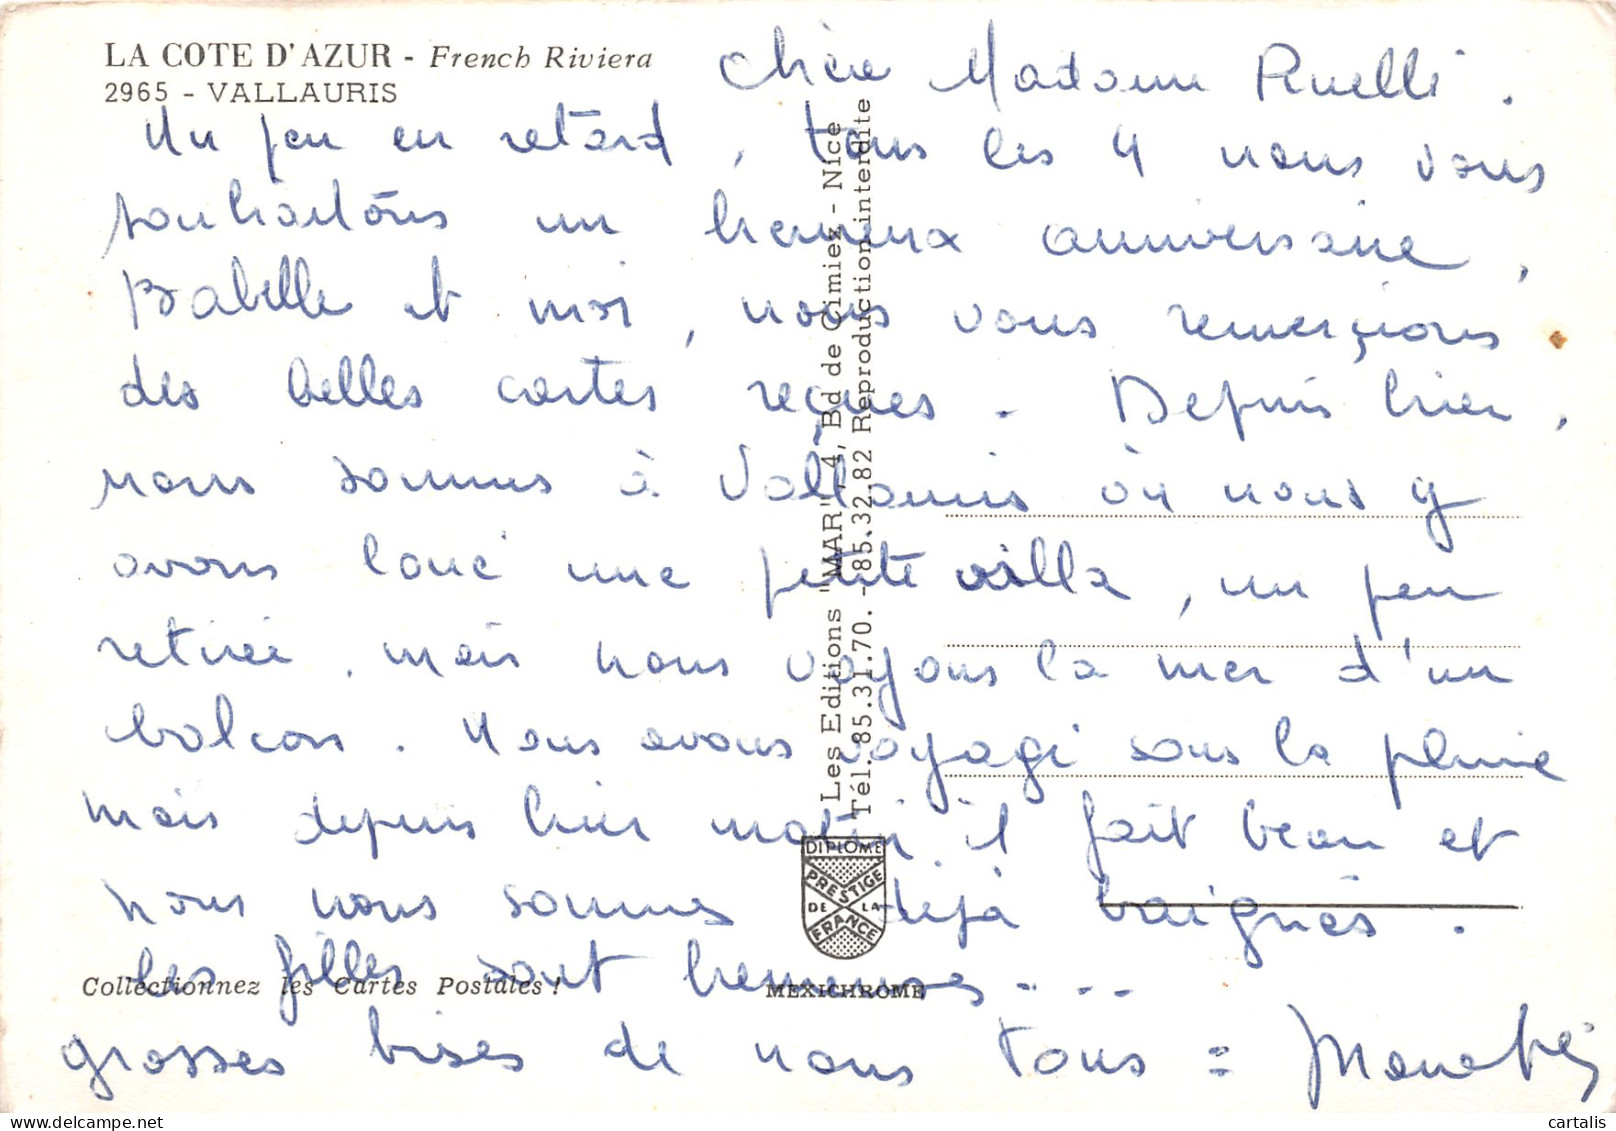 LA COTE D'AZUR - French Riviera
2965 - VALLAURIS
Chère Madame Ruelle.
Un peu en retard, tous les 4 nous vous
souhaitons un heureux anniversaire,
Babelle et moi, nous vous remerçions
des belles cartes reçues. Depuis hier,
nous sommes à Vallauris où nous y
avons loué une petite villa, un peu
retirée, mais nous voyons la mer d'un
balcon. Nous avons voyagé sous la pluie
mais depuis hier matin il fait beau et
nous nous sommes déjà baignés.
Les filles sont heureuses....
grosses bises de nous tous =
Les Editions "MAR", 4, Bd de Cimiez - Nice
Tél. 85.31.70. - 85.32.82 Reproduction interdite
DIPLOME
PRESTIGE
DE LA
FRANCE
Collectionnez les Cartes Postales !
MEXICHROME
cartalis